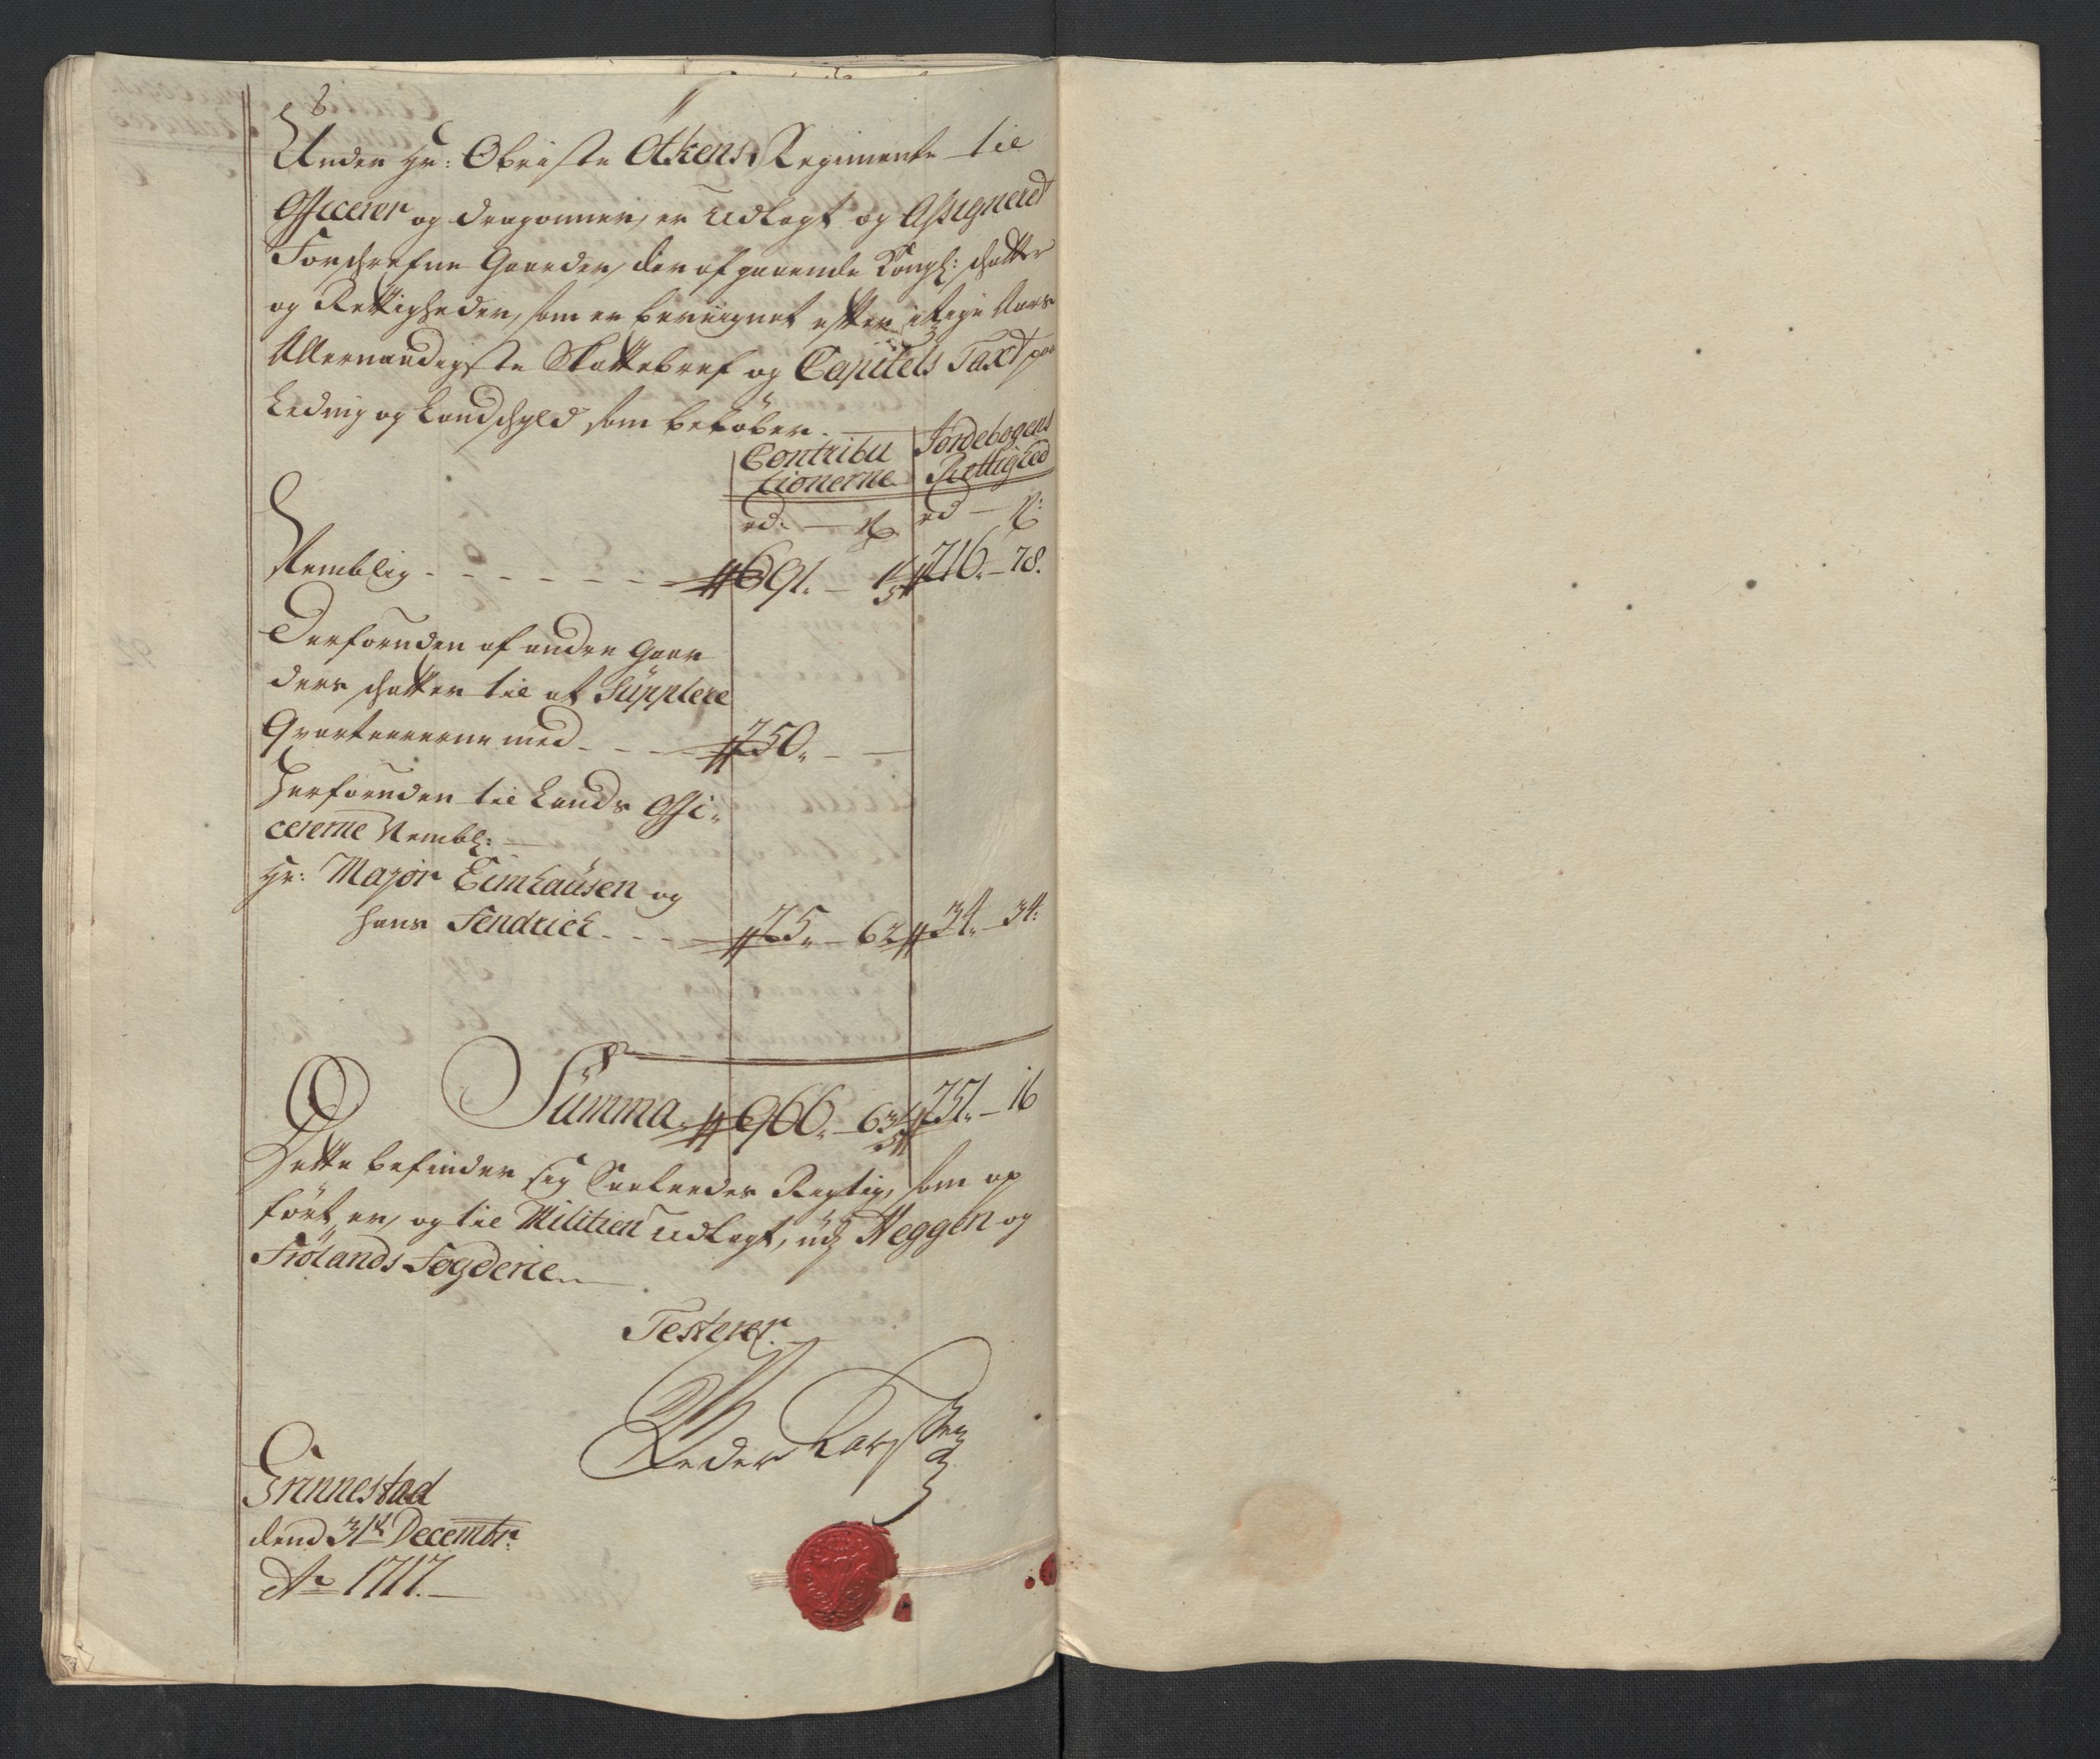 Under Hr: Obriste Øtkens Regimente til
Officerer og Dragonner, er Udlagt og Assigneret
Forschrefne Gaarder, der af gaaende Kongl: schatter
og Rettigheder, som er bereignet efter dette Aars
Allernaadigste Skattebref og Capitels Taxt paa
Leding og Landschyld som beløber.
Contributionerne Jordebogens Rettighed
rd: — ß rd — ß:
Nemblig - - - - - - 691. — 1 216. — 78.
Derforuden af andre Gaar
ders schatter til at Supplere
Qvarteererne med - - - 250. — —
Herforuden til Lands Offi-
cererne Nembl:
Hr: Major Eimhausen og
hans Fendrich - - - 25. — 62 34. — 34.
Summa 966. — 63 251. — 16
Dette befinder sig Saaledes Rigtig, som op
ført er, og til Militien Udlagt, udj Heggen og
Frølands Fogderie
Testerer
Peder Larssen
Grinnestad
dend 31te Decembr:
Ao 1717.